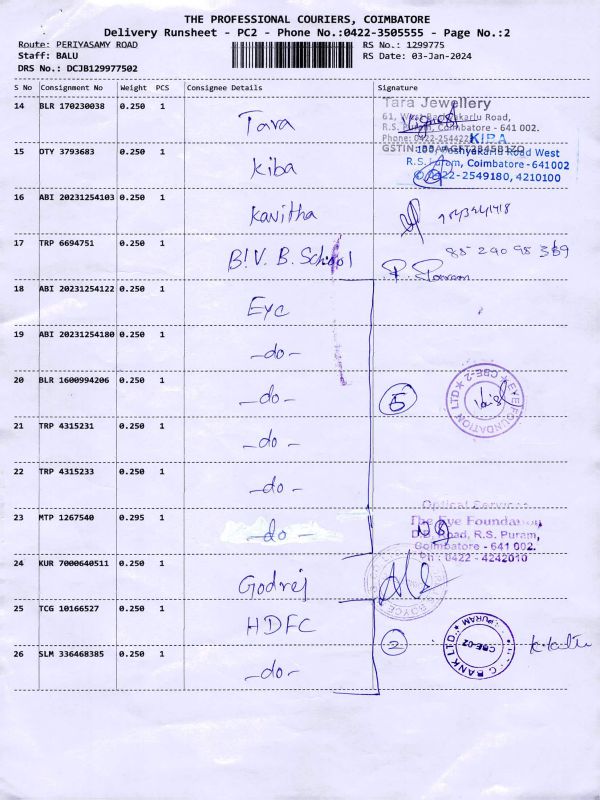 THE PROFESSIONAL COURIERS, COIMBATORE
Delivery Runsheet - PC2 - Phone No.:0422-3505555 - Page No.:2
Route: PERIYASAMY ROAD
RS No.: 1299775
Staff: BALU
RS Date: 03-Jan-2024
DRS No.: DCJB129977502
S No Consignment No Weight PCS Consignee Details Signature
14 BLR 170230038 0.250 1 Tara
Tara Jewellery
R.S. Puram, Coimbatore - 641 002.
15 DTY 3793683 0.250 1 Kiba
KIBA
Road West
R.S. Puram, Coimbatore - 641002
0422-2549180, 4210100
16 ABI 20231254103 0.250 1 Kavitha
17 TRP 6694751 0.250 1 B.V.B. School
85 290 95 369
18 ABI 20231254122 0.250 1 Eye
19 ABI 20231254180 0.250 1 -do-
20 BLR 1600994206 0.250 1 -do- 5
EYE FOUNDATION LTD ★ CBE-2 ★
21 TRP 4315231 0.250 1 -do-
22 TRP 4315233 0.250 1 -do-
23 MTP 1267540 0.295 1 -do-
Optical Services
The Eye Foundation
D.B. Road, R.S. Puram,
Coimbatore - 641 002.
Ph : 0422 - 4242010
24 KUR 7000640511 0.250 1 Godrej
25 TCG 10166527 0.250 1 HDFC
2
BANK LTD. PURAM CBE-02
26 SLM 336468385 0.250 1 -do-